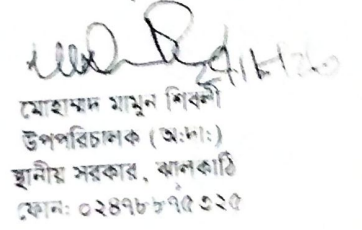 মোহাম্মদ মামুন শিবলী
উপপরিচালক (অঃদাঃ)
স্থানীয় সরকার, ঝালকাঠি
ফোন: ০২৪৭৮৮৭৫৩২৫